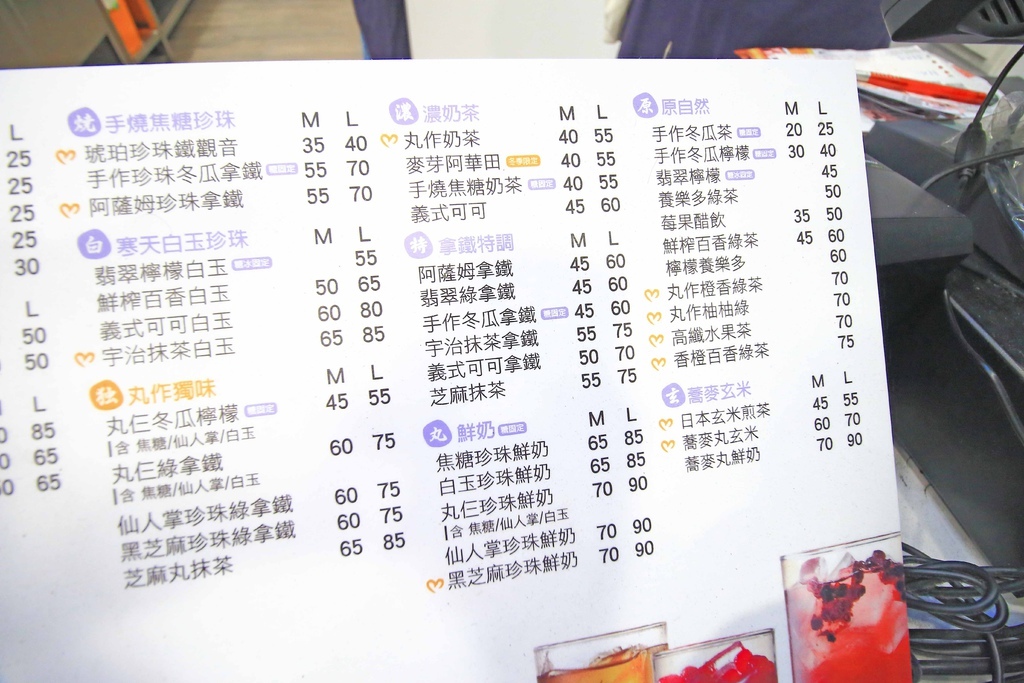 L
25
25
25
25
30
L
50
50
L
85
65
65
燒 手燒焦糖珍珠 M L
琥珀珍珠鐵觀音 35 40
手作珍珠冬瓜拿鐵 糖固定 55 70
阿薩姆珍珠拿鐵 55 70
白 寒天白玉珍珠 M L
翡翠檸檬白玉 糖冰固定 55
鮮榨百香白玉 50 65
義式可可白玉 60 80
宇治抹茶白玉 65 85
独 丸作獨味 M L
丸仨冬瓜檸檬 糖固定 45 55
含 焦糖/仙人掌/白玉
丸仨綠拿鐵 60 75
含 焦糖/仙人掌/白玉
仙人掌珍珠綠拿鐵 60 75
黑芝麻珍珠綠拿鐵 60 75
芝麻丸抹茶 65 85
濃 濃奶茶 M L
丸作奶茶 40 55
麥芽阿華田 冬季限定 40 55
手燒焦糖奶茶 糖固定 40 55
義式可可 45 60
拿鐵特調 M L
阿薩姆拿鐵 45 60
翡翠綠拿鐵 45 60
手作冬瓜拿鐵 糖固定 45 60
宇治抹茶拿鐵 55 75
義式可可拿鐵 50 70
芝麻抹茶 55 75
丸 鮮奶 糖固定 M L
焦糖珍珠鮮奶 65 85
白玉珍珠鮮奶 65 85
丸仨珍珠鮮奶 70 90
含 焦糖/仙人掌/白玉
仙人掌珍珠鮮奶 70 90
黑芝麻珍珠鮮奶 70 90
原 原自然 M L
手作冬瓜茶 糖固定 20 25
手作冬瓜檸檬 糖固定 30 40
翡翠檸檬 糖冰固定 45
養樂多綠茶 50
莓果醋飲 35 50
鮮榨百香綠茶 45 60
檸檬養樂多 60
丸作橙香綠茶 70
丸作柚柚綠 70
高纖水果茶 70
香橙百香綠茶 75
玄 蕎麥玄米 M L
日本玄米煎茶 45 55
蕎麥丸玄米 60 70
蕎麥丸鮮奶 70 90